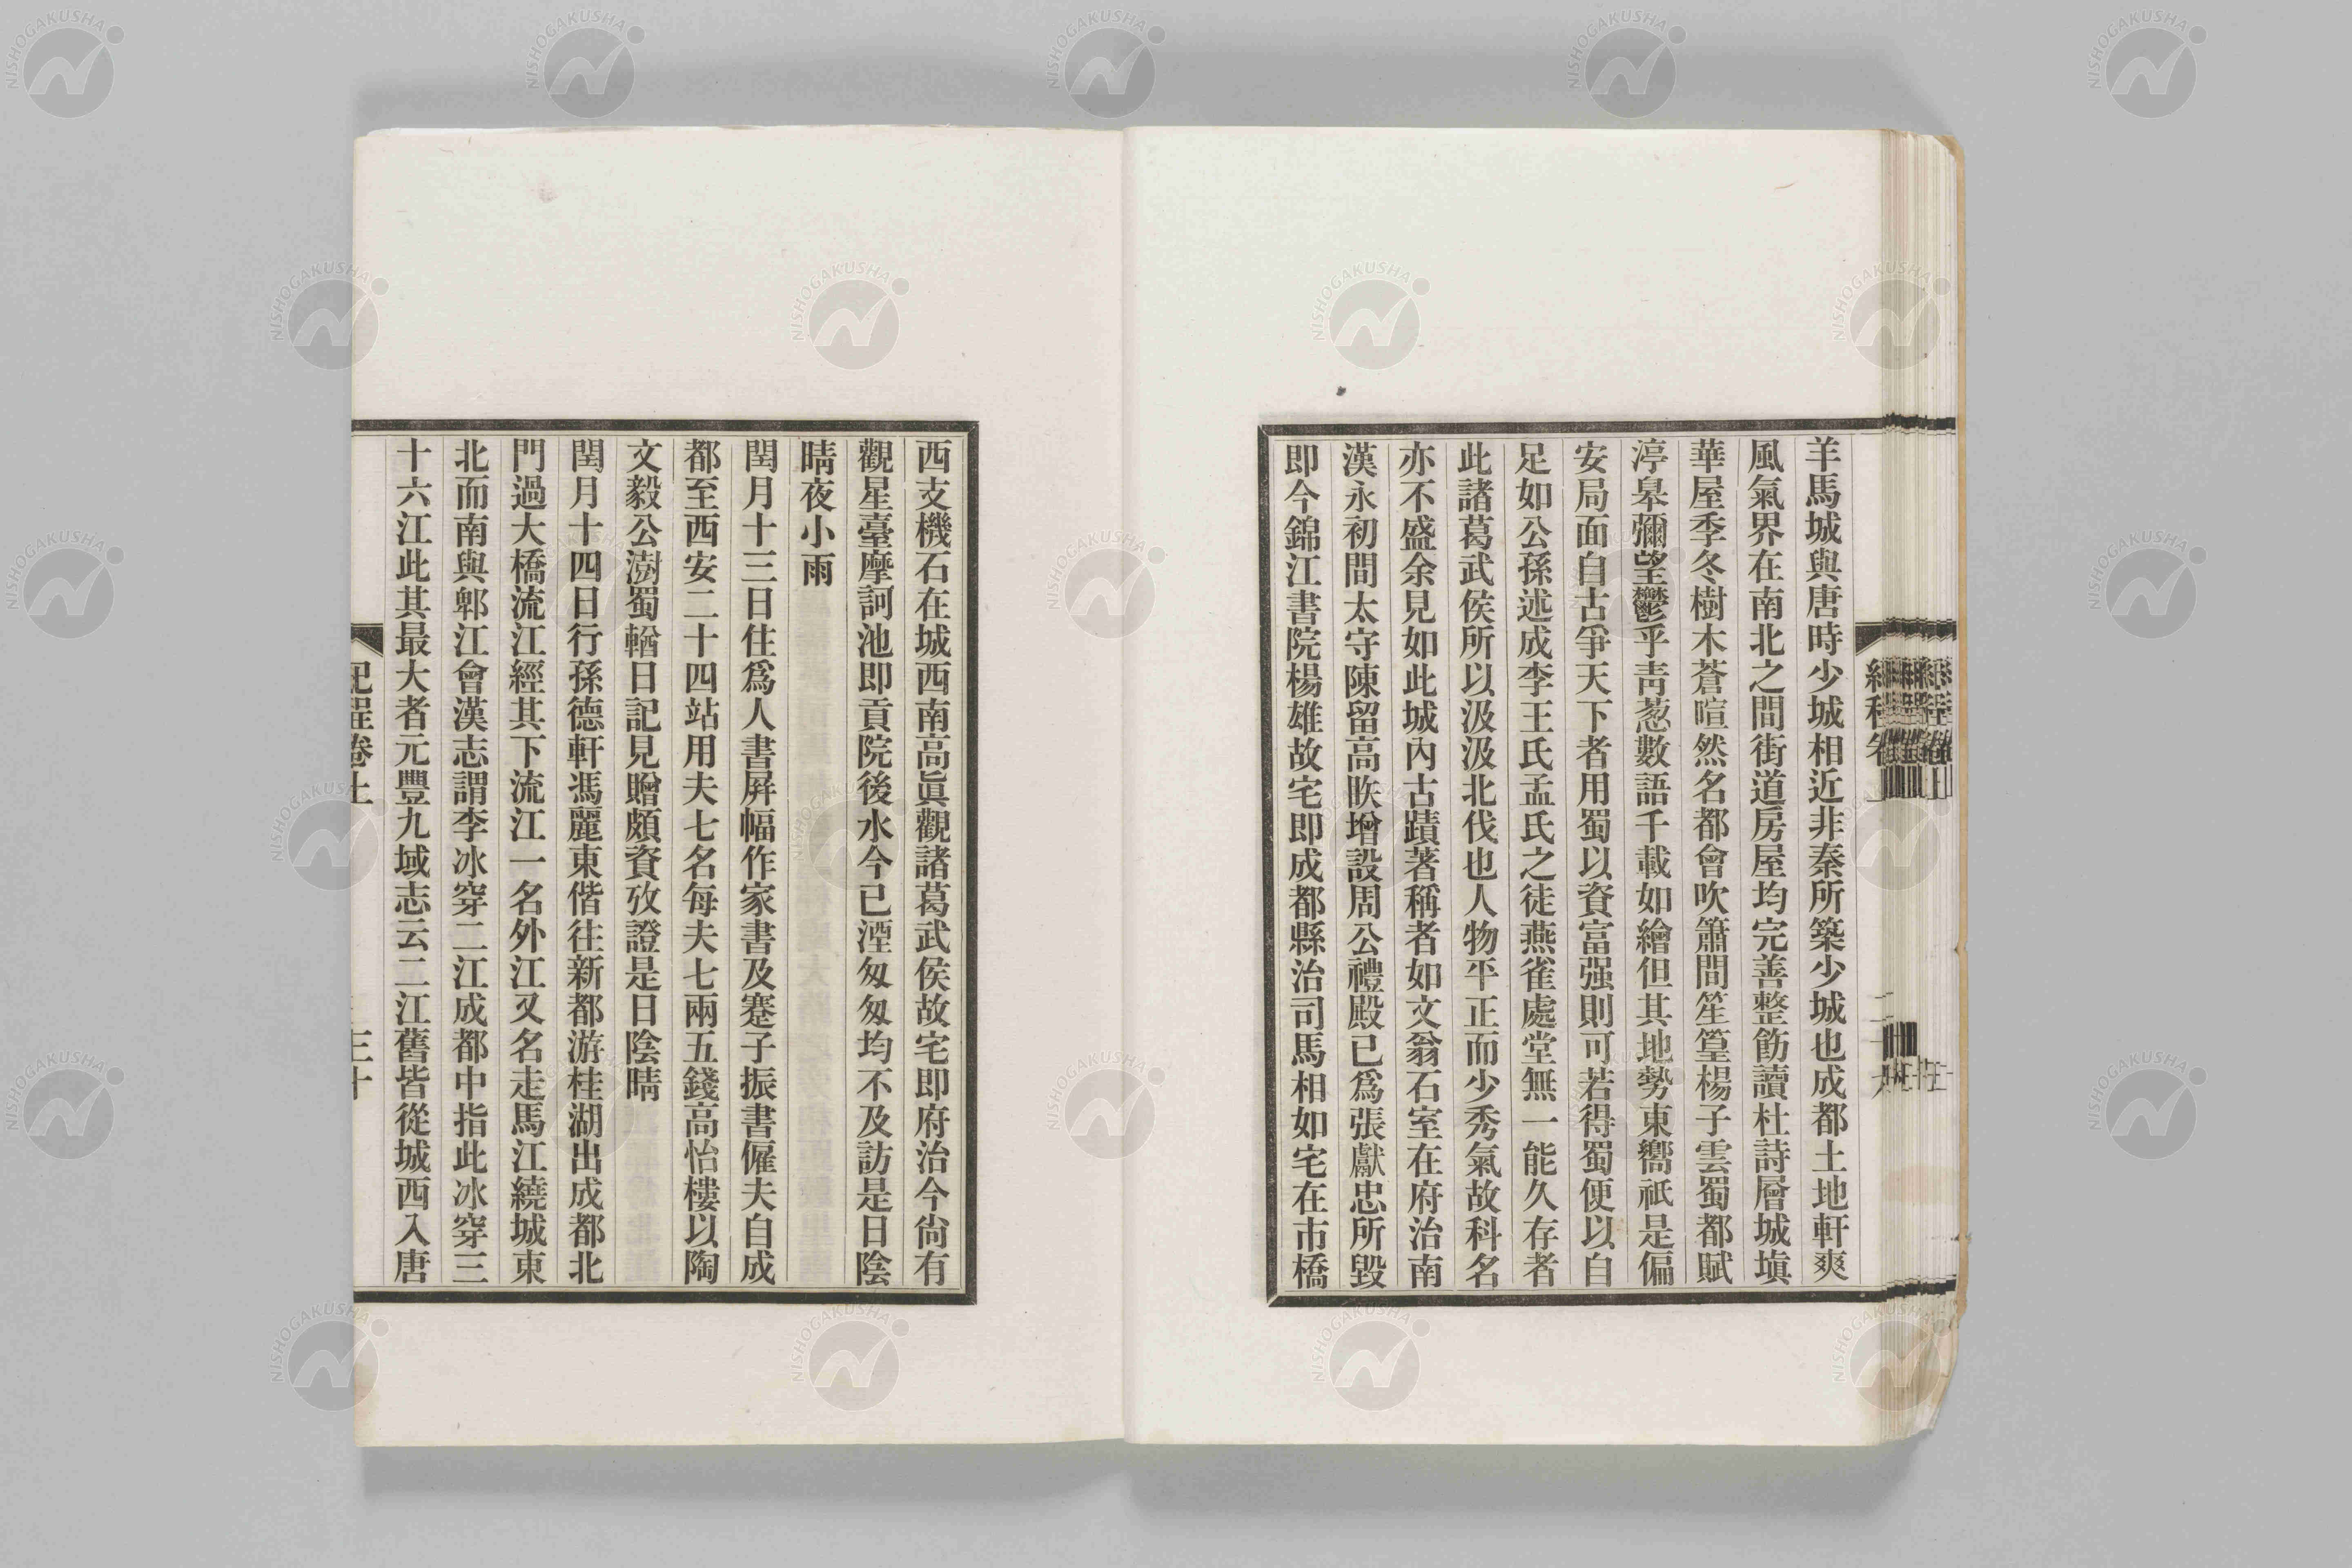 羊馬城與唐時少城相近非秦所築少城也成都土地軒爽
風氣界在南北之間街道房屋均完善整飭讀杜詩層城塡
華屋季冬樹木蒼喧然名都會吹簫間笙篁楊子雲蜀都賦
渟皋彌望鬱乎靑葱數語千載如繪但其地勢東嚮祇是偏
安局面自古爭天下者用蜀以資富强則可若得蜀便以自
足如公孫述成李王氏孟氏之徒燕雀處堂無一能久存者
此諸葛武侯所以汲汲北伐也人物平正而少秀氣故科名
亦不盛余見如此城內古蹟著稱者如文翁石室在府治南
漢永初間太守陳留高眹增設周公禮殿已爲張獻忠所毀
即今錦江書院楊雄故宅即成都縣治司馬相如宅在市橋
西支機石在城西南高眞觀諸葛武侯故宅即府治今尙有
觀星臺摩訶池即貢院後水今已湮匆匆均不及訪是日陰
晴夜小雨
閏月十三日住爲人書屛幅作家書及蹇子振書僱夫自成
都至西安二十四站用夫七名每夫七兩五錢高怡樓以陶
文毅公澍蜀輶日記見贈頗資攷證是日陰晴
閏月十四日行孫德軒馮麗東偕往新都游桂湖出成都北
門過大橋流江經其下流江一名外江又名走馬江繞城東
北而南與郫江會漢志謂李冰穿二江成都中指此冰穿三
十六江此其最大者元豐九域志云二江舊皆從城西入唐
紀程卷上
三十
NISHOGAKUSHA